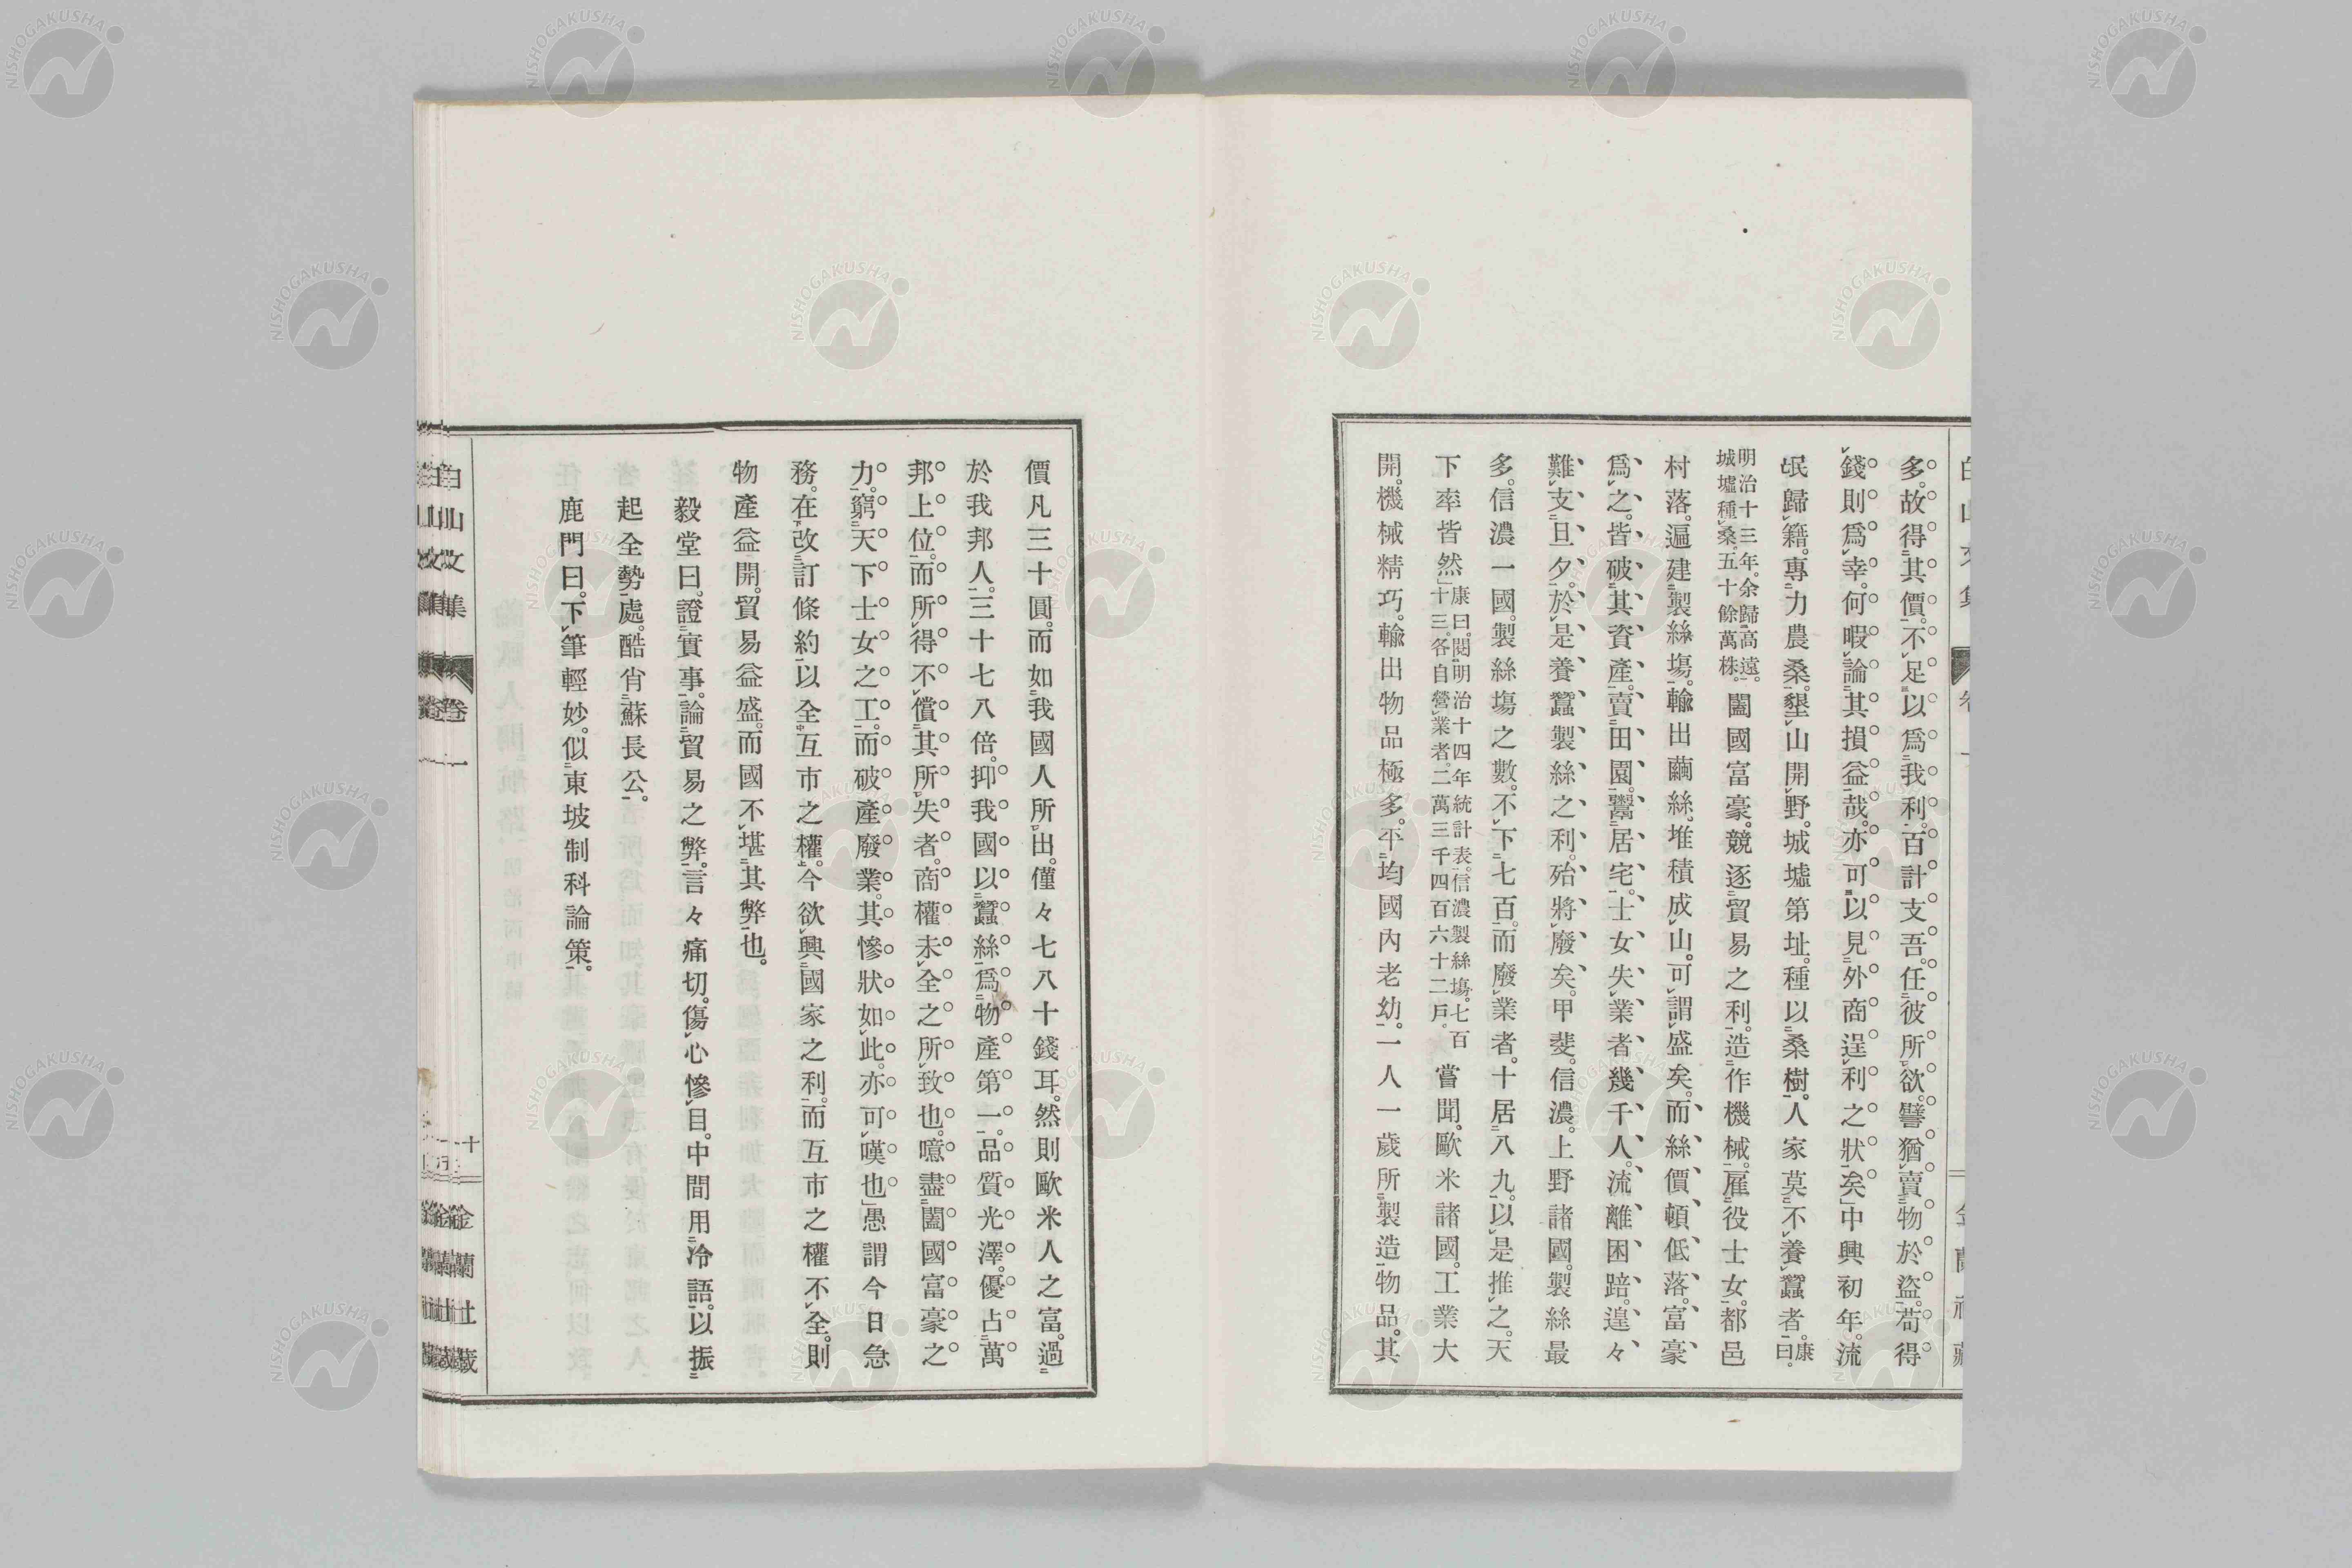 多。故得其價。不足以爲我利。百計支吾。任彼所欲。譬猶賣物於盜。苟得
錢則爲幸。何暇論其損益哉。亦可以見外商逞利之狀矣」中興初年。流
氓歸籍。專力農桑。墾山開野。城墟第址。種以桑樹。人家莫不養蠶者。康曰。
明治十三年。余歸高遠。
城墟種桑。五十餘萬株。
闔國富豪。競逐貿易之利。造作機械。雇役士女。都邑
村落。遍建製絲塲。輸出繭絲。堆積成山。可謂盛矣。而絲價頓低落。富豪
爲之。皆破其資產。賣田園。鬻居宅。士女失業者幾千人。流離困踣。遑々
難支旦夕。於是養蠶製絲之利。殆將廢矣。甲斐。信濃。上野諸國。製絲最
多。信濃一國。製絲塲之數。不下七百。而廢業者。十居八九。以是推之。天
下率皆然」
康曰。閱明治十四年統計表。信濃製絲塲。七百
十三。各自營業者。二萬三千四百六十二戶。
嘗聞。歐米諸國。工業大
開。機械精巧。輸出物品極多。平均國內老幼。一人一歲所製造物品。其
白山文集
卷一
價凡三十圓。而如我國人所出。僅々七八十錢耳。然則歐米人之富。過
於我邦人。三十七八倍。抑我國以蠶絲爲物產第一。品質光澤。優占萬
邦上位。而所得不償其所失者。商權未全之所致也。噫盡闔國富豪之
力。窮天下士女之工。而破產廢業。其慘狀如此。亦可嘆也」愚謂今日急
務。在改訂條約以全互市之權。今欲興國家之利。而互市之權不全。則
物產益開。貿易益盛。而國不堪其弊也。
毅堂曰。證實事。論貿易之弊。言々痛切。傷心慘目。中間用冷語。以振
起全勢處。酷肖蘇長公。
鹿門曰。下筆輕妙。似東坡制科論策。
白山文集
卷一
金蘭社藏